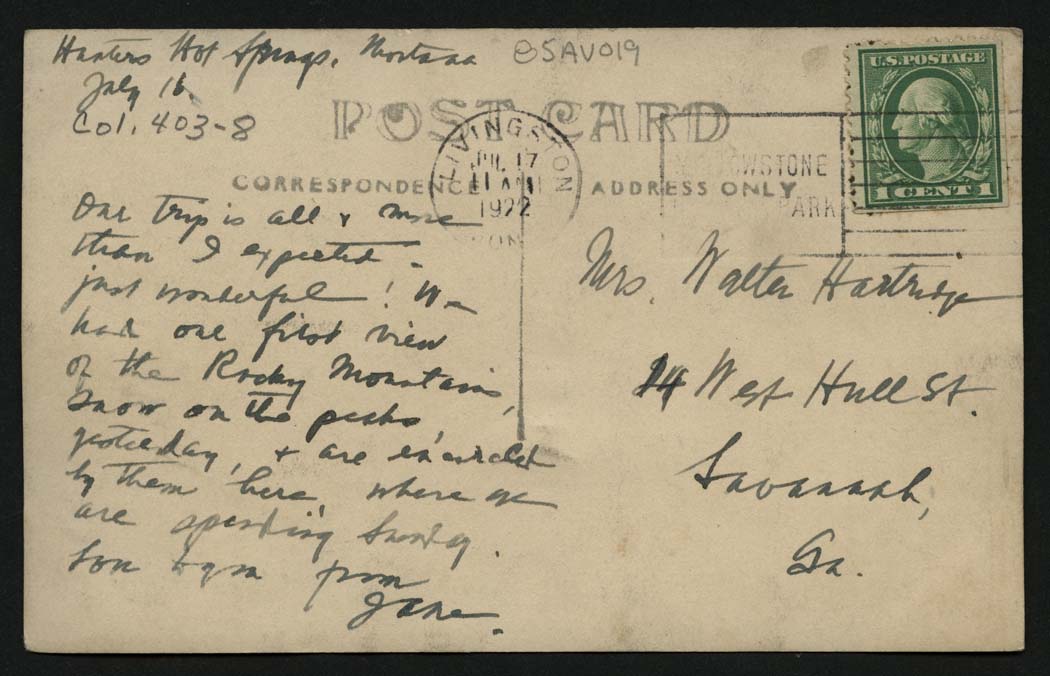 Hunters Hot Springs, Montana
85AV019
July 16.
Col. 403-8
POST CARD
CORRESPONDENCE
ADDRESS ONLY
LIVINGSTON
JUL 17
11 AM
1922
MON
YELLOWSTONE
PARK
U.S. POSTAGE
1 CENT 1
Our trip is all & more
than I expected -
just wonderful! We
had our first view
of the Rocky Mountains,
snow on the peaks,
yesterday, & are encircled
by them here, where we
are spending Sunday.
from
Jane.
Mrs. Walter Hartridge
14 West Hull St.
Savannah,
Ga.